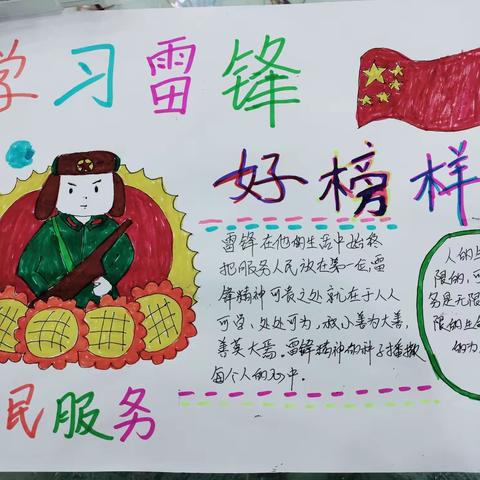 学习雷锋
好榜样
雷锋在他的生活中始终
把服务人民放在第一位,雷
锋精神可贵之处就在于人人
可学,处处可为,献小善为大善,
善莫大焉。雷锋精神的种子播撒
每个人的心中.
人的生
限的,可
务是无限
限的生命
的为
民服务